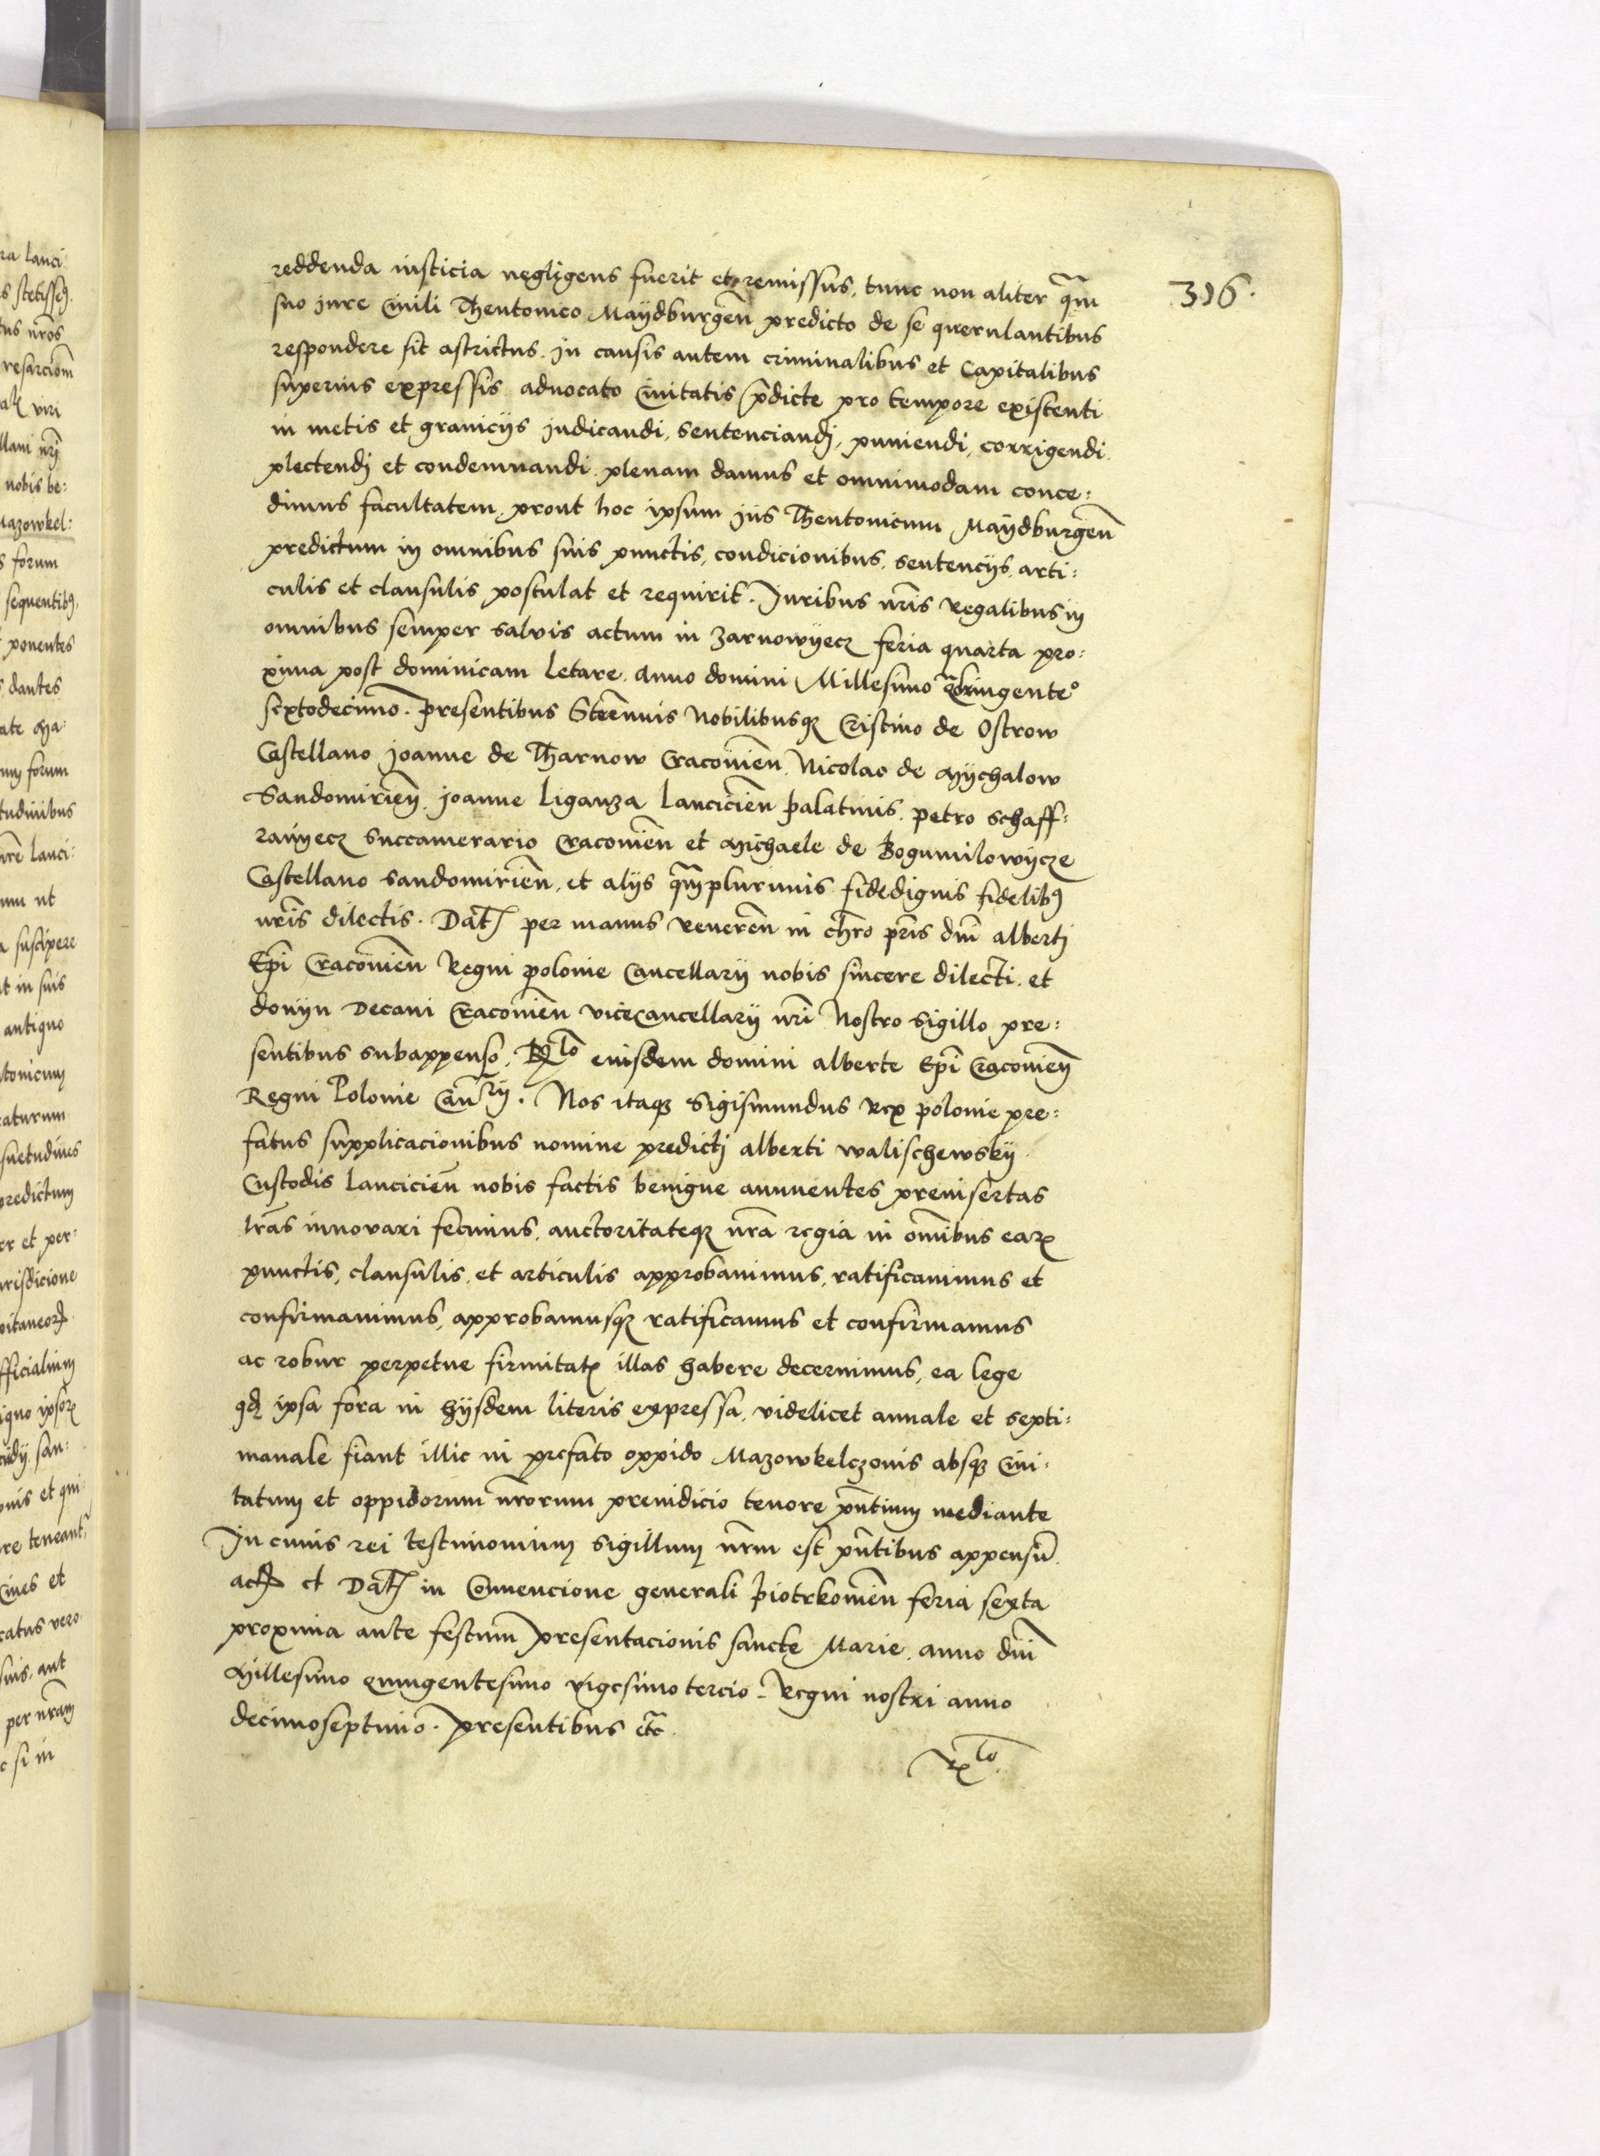 316.
reddenda iusticia negligens fuerit et remissus, tunc non aliter q̃m
suo jure Ciuili Theutonico Maydburgeñ predicto de se querulantibus
respondere sit astrictus. Jn causis autem criminalibus et Capitalibus
superius expressis aduocato Ciuitatis p̃dicte pro tempore existenti
in metis et graniciis judicandi, sentenciandj, puniendi, corrigendi
plectendj et condemnandi plenam damus et omnimodam conce:
dimus facultatem, prout hoc ipsum jus Theutonicum Maydburgeñ
predictum in omnibus suis punctis, condicionibus, sentencijs, arti:
culis et clausulis postulat et requirit. Juribus nr̃is regalibus in
omnibus semper salvis actum in Zarnowyecz feria quarta pro:
xima post dominicam letare. Anno domini Millesimo q̃dringente°
sextodecimo. Presentibus Strennuis Nobilibusq3 Cristino de Ostrow
Castellano Joanne de Tharnow Cracouieñ Nicolao de Mychalow
Sandomirieñ. Joanne liganza lancicieñ palatinis. petro schaff:
ranyecz succamerario Cracouieñ et Michaele de Bogumilowycze
Castellano sandomirieñ, et alijs q̃mplurimis fidedignis fidelib9
nr̃is dilectis. Dat̃ per manus Reuereñ in chr̃o pr̃is dñi alberti
Epĩ Cracouieñ Regni polonie Cancellarij nobis sincere dilecti. et
donyn Decani Cracouieñ vicecancellarij nr̃i Nostro sigillo pre:
sentibus subappenso, R̃lo eiusdem domini alberte Epĩ Cracouieñ
Regni Polonie Can̄rij. Nos itaq3 Sigismundus Rex polonie pre:
fatus supplicacionibus nomine predictj alberti walischewskij
Custodis lancicieñ nobis factis benigne annuentes preinsertas
lr̃as innovari fecimus, auctoritateq3 nr̃a regia in om̃ibus ear̃
punctis, clausulis, et articulis approbauimus, ratificauimus et
confirmauimus, approbamusq3 ratificamus et confirmamus
ac robur perpetue firmitat̃ illas habere decernimus, ea lege
qđ ipsa fora in hijsdem literis expressa, videlicet annale et septi:
manale fiant illic in prefato oppido Mazowkelczonis absq3 Ciui:
tatum et oppidorum nr̃orum preiudicio tenore pñtium mediante
Jn cuius rei testimonium sigillum nr̃m est pñtibus appensũ.
act̃ et Dat̃ in Conuencione generali piotrkouieñ feria sexta
proxima ante festum presentacionis sancte Marie. anno dñi
Millesimo Quingentesimo vigesimo tercio. Regni nostri anno
decimoseptimo. presentibus etc̃.
R̃lo.